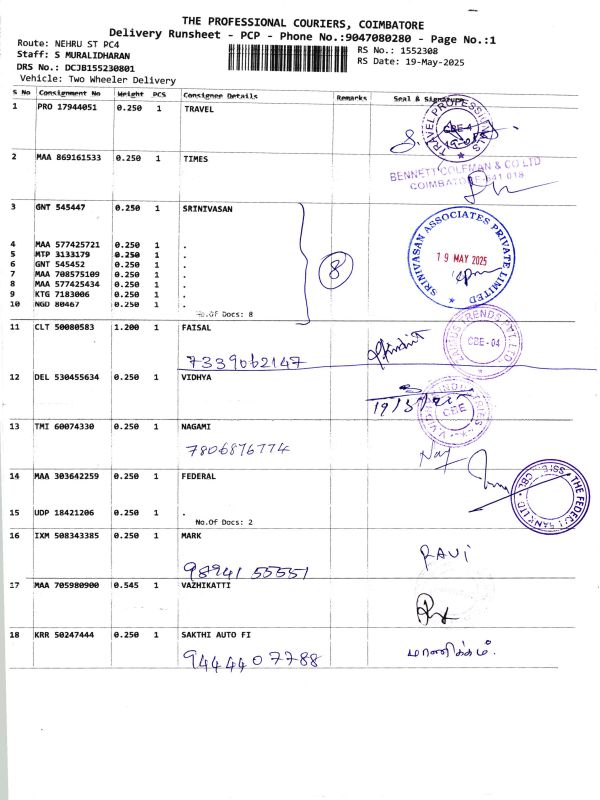 THE PROFESSIONAL COURIERS, COIMBATORE
Delivery Runsheet - PCP - Phone No.:9047080280 - Page No.:1
Route: NEHRU ST PC4
Staff: S MURALIDHARAN
DRS No.: DCJB155230801
Vehicle: Two Wheeler Delivery
RS No.: 1552308
RS Date: 19-May-2025
S No Consignment No Weight PCS Consignee Details Remarks Seal & Signature
1 PRO 17944051 0.250 1 TRAVEL
TRAVEL PROFESSIONALS
CBE-4
2 MAA 869161533 0.250 1 TIMES
BENNETT COLEMAN & CO LTD
COIMBATORE-641 018
3 GNT 545447 0.250 1 SRINIVASAN
SRINIVASAN ASSOCIATES PRIVATE LIMITED
19 MAY 2025
4 MAA 577425721 0.250 1 .
5 MTP 3133179 0.250 1 .
6 GNT 545452 0.250 1 .
7 MAA 708575109 0.250 1 .
8 MAA 577425434 0.250 1 .
9 KTG 7183006 0.250 1 .
10 NGD 80467 0.250 1 .
8
No.Of Docs: 8
11 CLT 50080583 1.200 1 FAISAL
7339062147
TRENDS PVT. LTD
CBE - 04
12 DEL 530455634 0.250 1 VIDHYA
CBE
13 TMI 60074330 0.250 1 NAGAMI
7806876774
14 MAA 303642259 0.250 1 FEDERAL
THE FEDERAL BANK LTD
15 UDP 18421206 0.250 1 .
No.Of Docs: 2
16 IXM 508343385 0.250 1 MARK
98941 55551
RAVI
17 MAA 705980900 0.545 1 VAZHIKATTI
18 KRR 50247444 0.250 1 SAKTHI AUTO FI
9444407788
மாணிக்கம்.